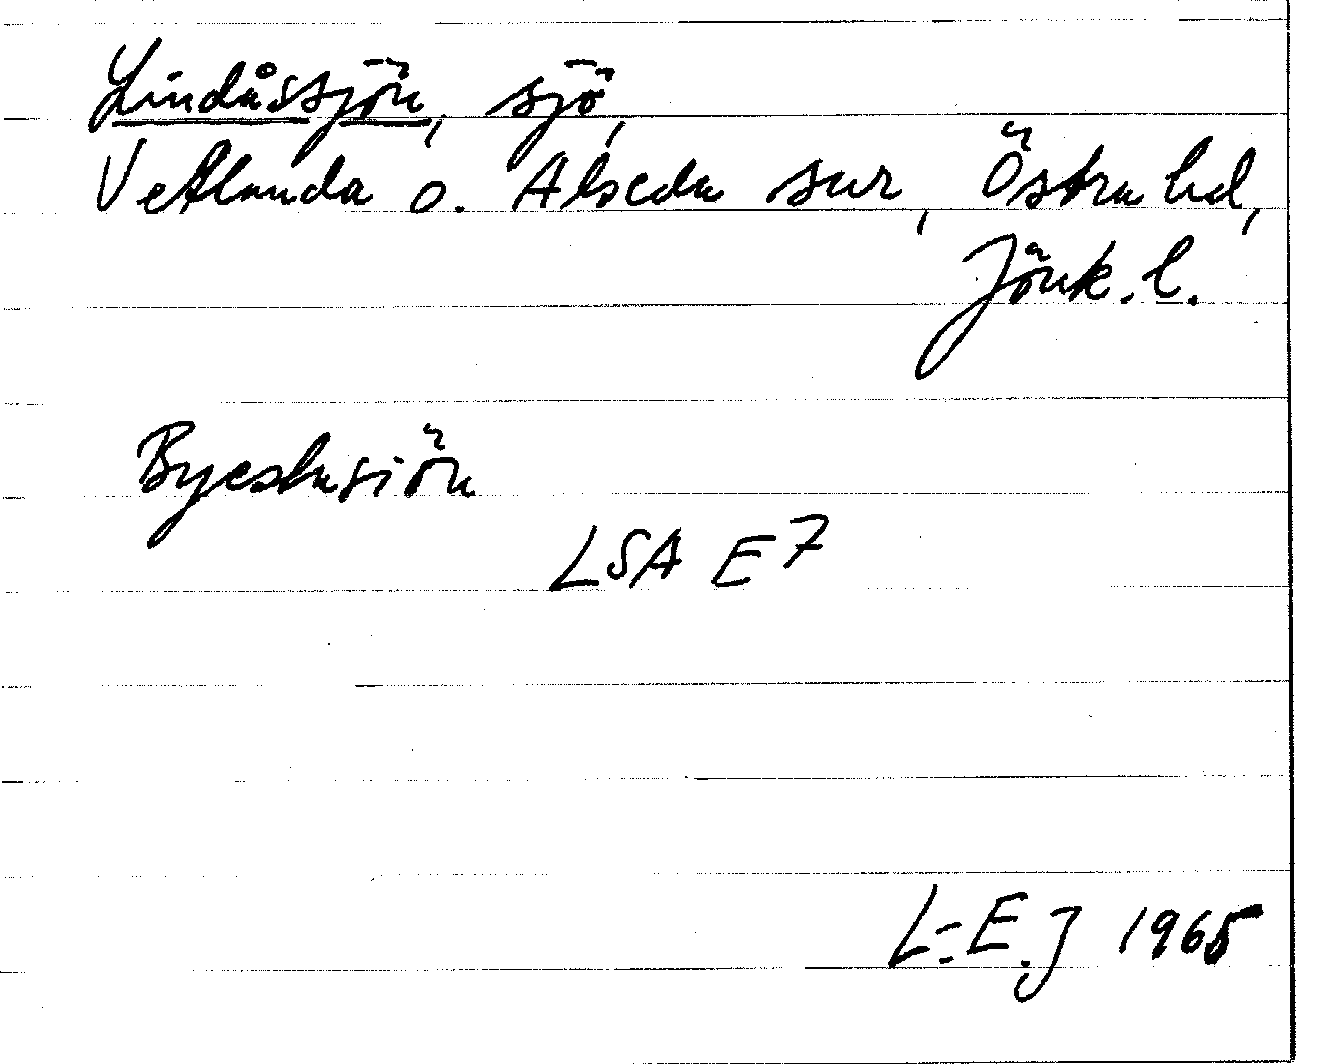 Lindåssjön, sjö,
Vetlanda o. Alseda snr, Östra hd,
Jönk. l.
Byeslusiön
LSA E7
L-E.J 1965